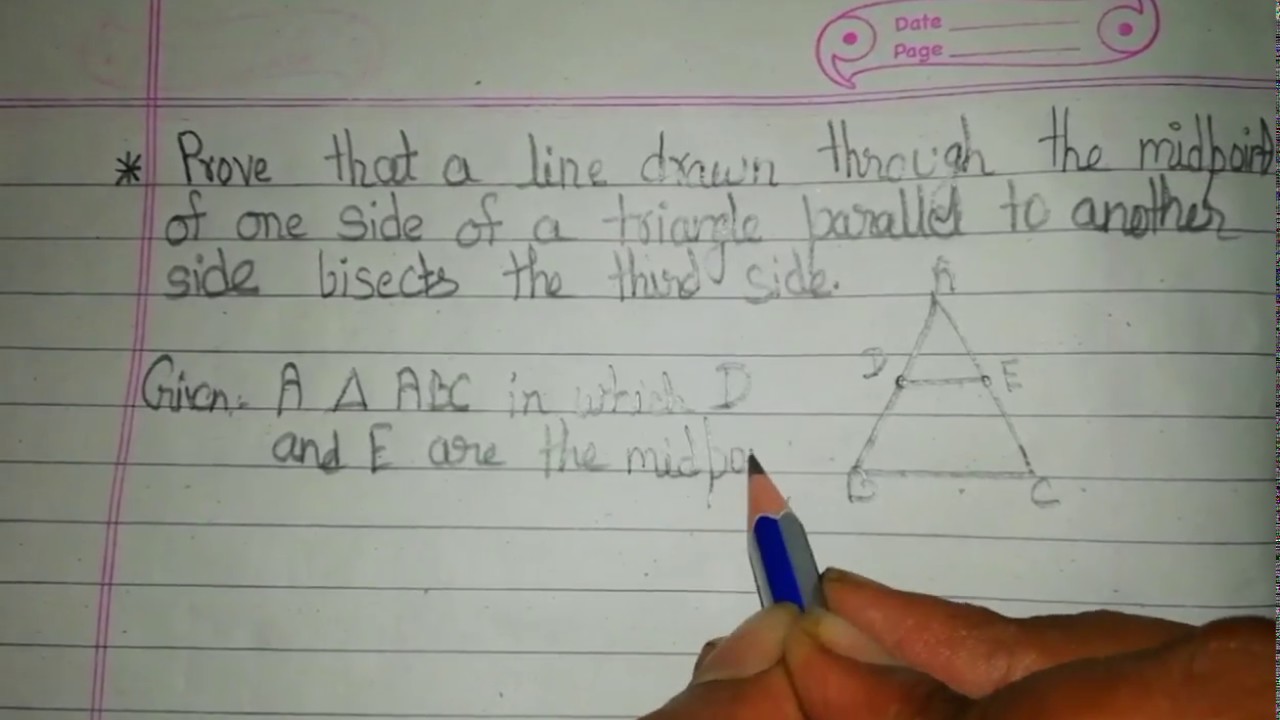 Date
Page
* Prove that a line drawn through the midpoint
of one side of a triangle parallel to another
side bisects the third side.
A
Given:- A Δ ABC in which D
D E
and E are the midpo
B C